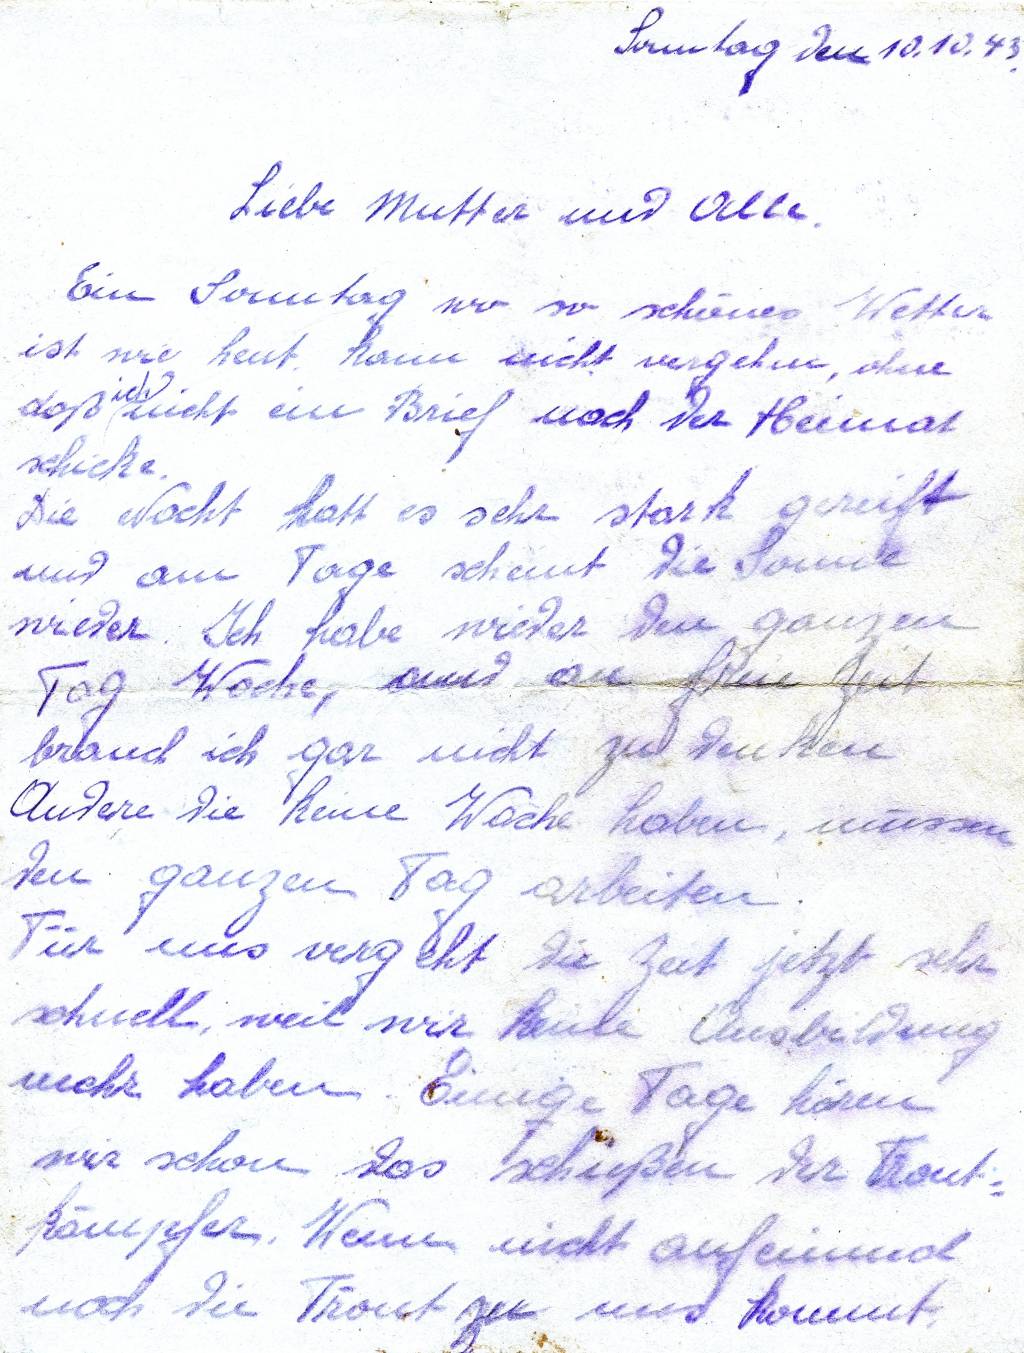 Sonntag den 10.10.43.
Liebe Mutter und Alle.
Ein Sonntag wo so schönes Wetter
ist wie heut. kann nicht vergehn, ohne
daß ich nicht ein Brief nach der Heimat
schicke.
Die Nacht hatt es sehr stark gereift
und am Tage scheint die Sonne
wieder. Ich habe wieder den ganzen
Tag Wache, und an freie Zeit
brauch ich gar nicht zu denken
Andere die keine Wache haben, müssen
den ganzen Tag arbeiten.
Für uns vergeht die Zeit jetzt sehr
schnell, weil wir keine Ausbildung
mehr haben. Einige Tage hören
wir schon das schießen der Front=
kämpfer. Wenn nicht aufeinmal
noch die Front zu uns kommt.